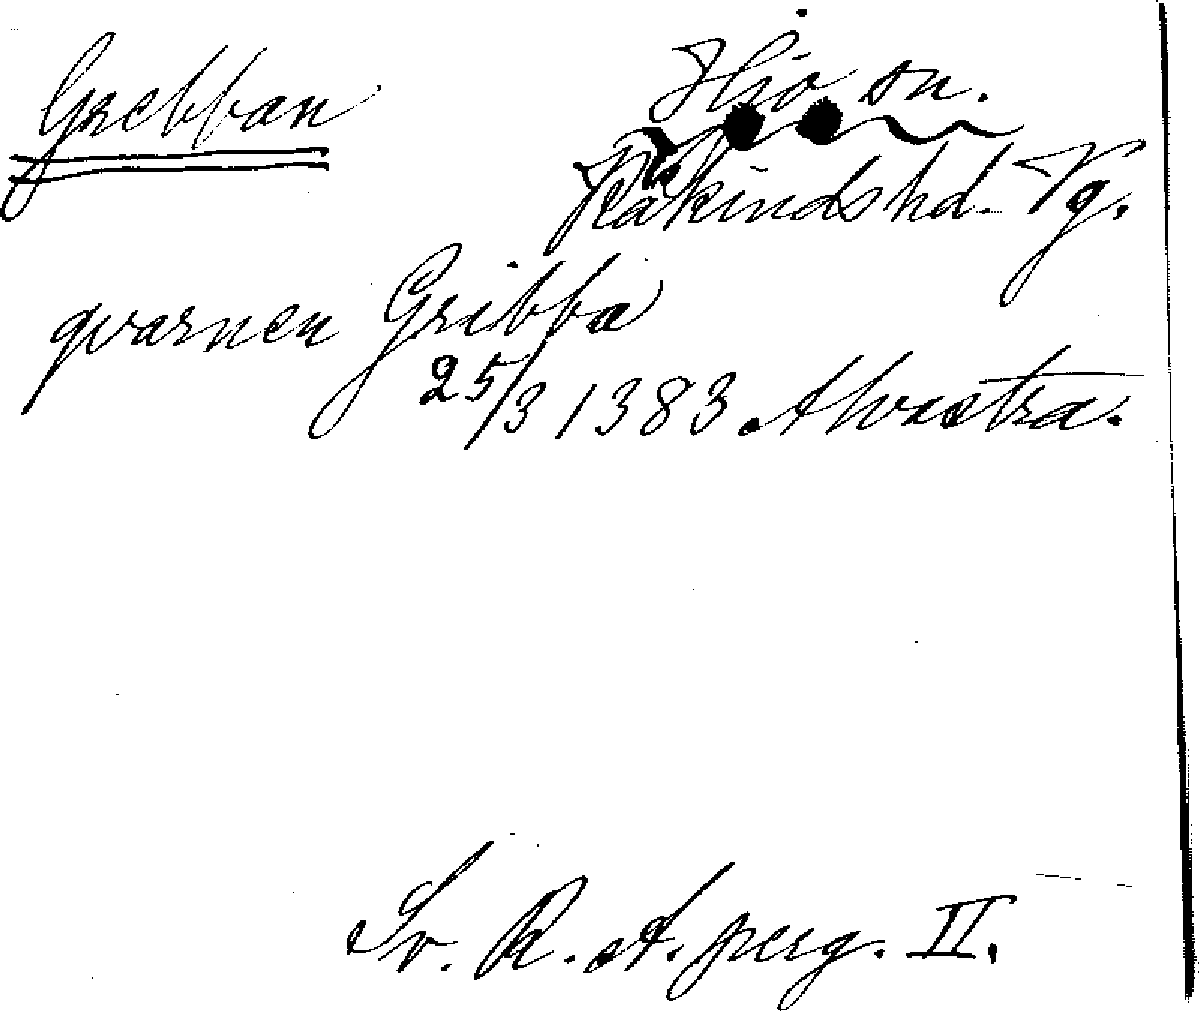 Grebban
Hjo sn.
Kåkindshd. Vg.
qvarnen Gribba
25/3 1383. Alvastra.
Sv. R. A. perg. II.